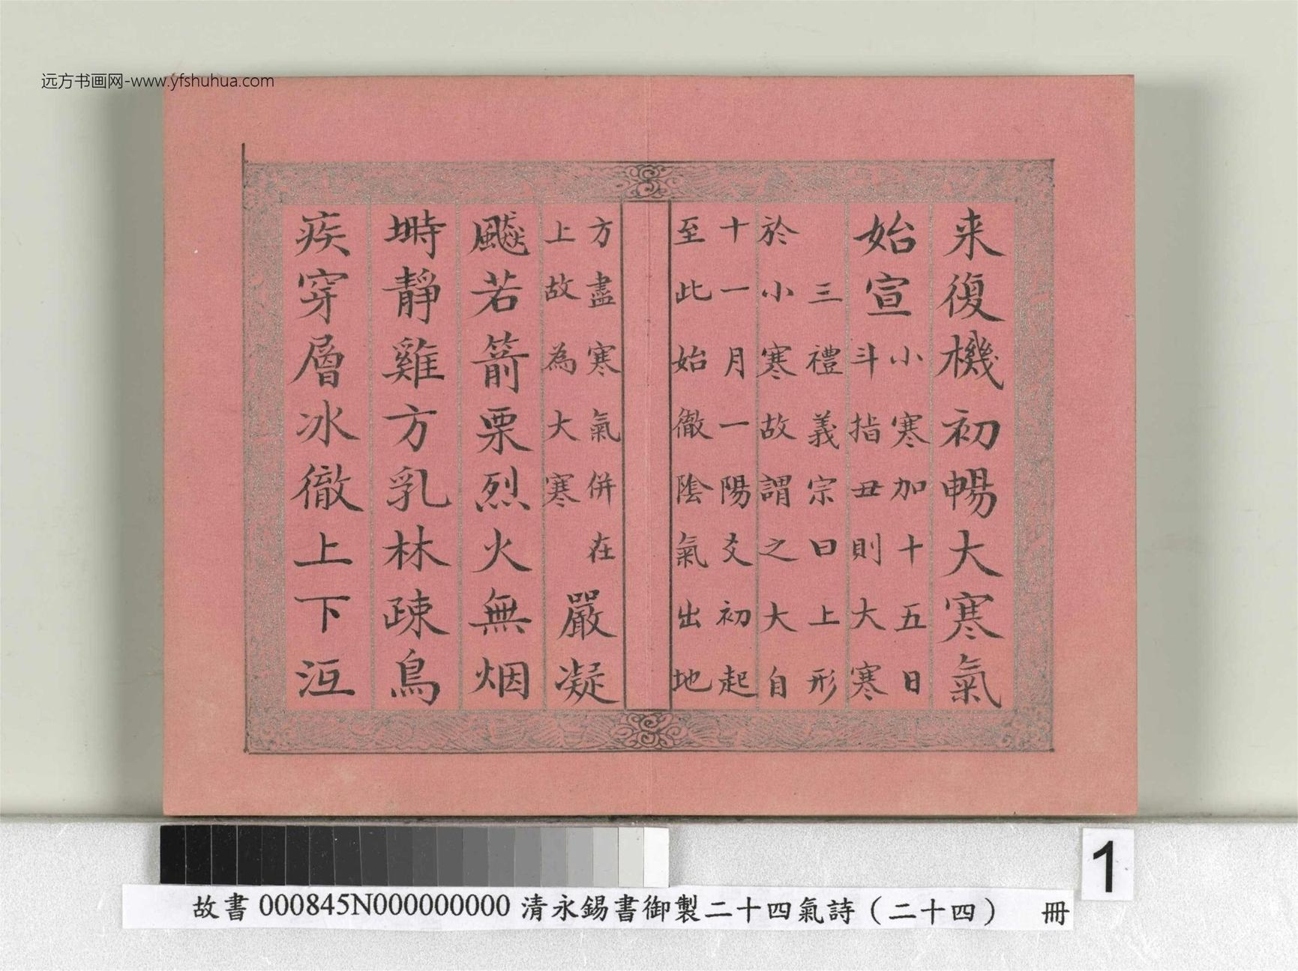 远方书画网-www.yfshuhua.com
来復機初暢大寒氣
始宣
小寒加十五日
斗指丑則大寒
三禮義宗曰上形
於小寒故謂之大自
十一月一陽爻初起
至此始徹陰氣出地
方盡寒氣併在
上故為大寒
嚴凝
飈若箭栗烈火無烟
塒靜雞方乳林疎鳥
疾穿層冰徹上下沍
1
故書 000845N000000000 清永錫書御製二十四氣詩（二十四） 冊